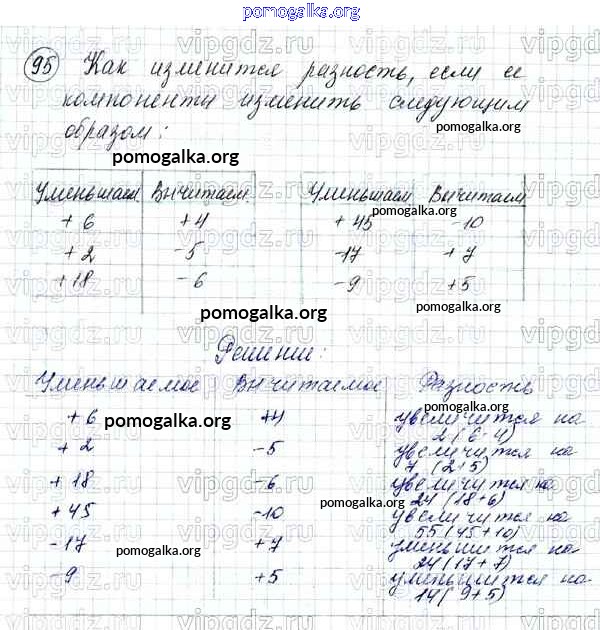 pomogalka.org
95 Как изменится разность, если ее
компоненты изменить следующим
образом:
pomogalka.org
pomogalka.org
Уменьшаем Вычитаем Уменьшаем Вычитаем
pomogalka.org
+6 +4 +45 -10
+2 -5 -17 +7
+18 -6 -9 +5
pomogalka.org
pomogalka.org
Решение:
Уменьшаемое Вычитаемое Разность
pomogalka.org
pomogalka.org
+6 +4 увеличится на
2 (6-4)
+2 -5 увеличится на
7 (2+5)
+18 -6 увеличится на
24 (18+6)
pomogalka.org
+45 -10 увеличится на
55 (45+10)
-17 +7 уменьшится на
24 (17+7)
pomogalka.org
pomogalka.org
-9 +5 уменьшится на
14 (9+5)